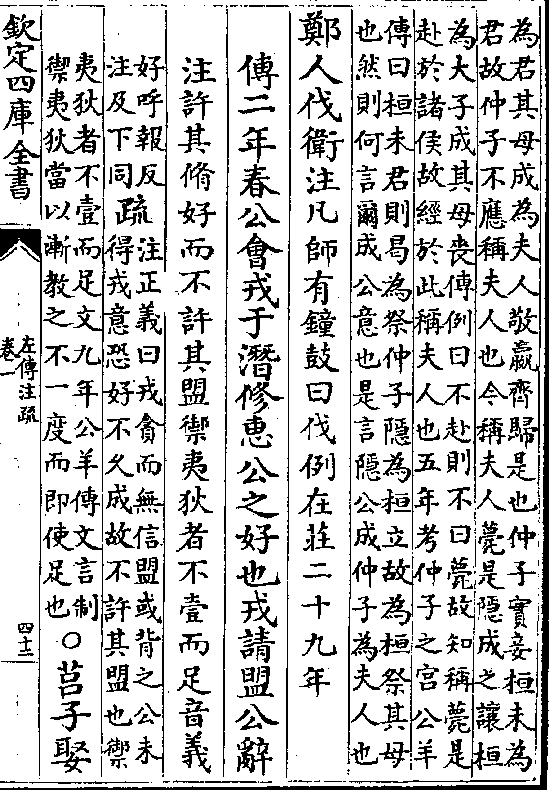 為君其母成為夫人敬嬴齊歸是也仲子實妾桓未為
君故仲子不應稱夫人也今稱夫人薨是隱成之讓桓
為大子成其母喪傳例曰不赴則不曰薨故知稱薨是
赴於諸侯故經於此稱夫人也五年考仲子之宮公羊
傳曰桓未君則曷為祭仲子隱為桓立故為桓祭其母
也然則何言爾成公意也是言隱公成仲子為夫人也
鄭人伐衛注凡師有鐘鼓曰伐例在莊二十九年
傳二年春公會戎于潛修惠公之好也戎請盟公辭
注許其脩好而不許其盟禦夷狄者不壹而足音義
好呼報反
注及下同
疏
注正義曰戎貪而無信盟或背之公未
得戎意恐好不久成故不許其盟也禦
夷狄者不壹而足文九年公羊傳文言制
禦夷狄當以漸教之不一度而即使足也
○莒子娶
欽定四庫全書
左傳注疏
卷一
四十二